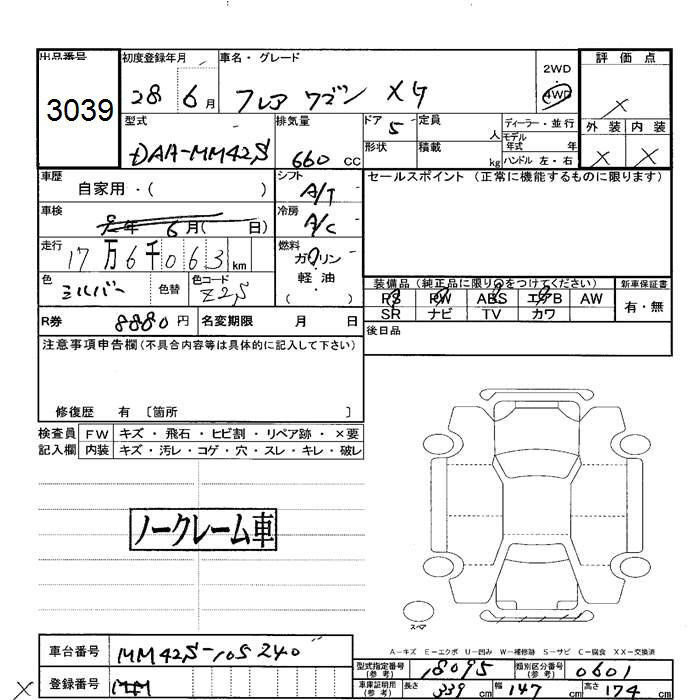 出品番号
3039
初度登録年月
28 6月
車名・グレード
フレア ワゴン XG
2WD
・
4WD
評価点
×
外装 内装
× ×
型式
DAA-MM42S
排気量
660 CC
ドア 5
形状
定員 人
積載 kg
ディーラー・並行
モデル年式 年
ハンドル 左・右
車歴
自家用・( )
シフト
A/T
車検
年 6月( 日)
冷房
A/C
走行
17万6千063km
燃料
ガソリン
・
軽・油
( )
色
シルバー
色替
色コード
Z2S
R券 8880円
名変期限 月 日
セールスポイント (正常に機能するものに限ります)
装備品 (純正品に限り○をつけてください)
PS PW ABS エアB AW
SR ナビ TV カワ
新車保証書
有・無
後日品
注意事項申告欄(不具合内容等は具体的に記入して下さい)
修復歴 有 〔箇所 〕
検査員
記入欄
FW キズ・飛石・ヒビ割・リペア跡・×要
内装 キズ・汚レ・コゲ・穴・スレ・キレ・破レ
ノークレーム車
スペア
A-キズ E-エクボ U-凹み W-補修跡 S-サビ C-腐食 XX-交換済
車台番号 MM42S-105240
登録番号 MM
×
型式指定番号
(参考)
18095
類別区分番号
(参考)
0601
車庫証明用
(参考)
長さ 339cm 幅 147cm 高さ 174cm